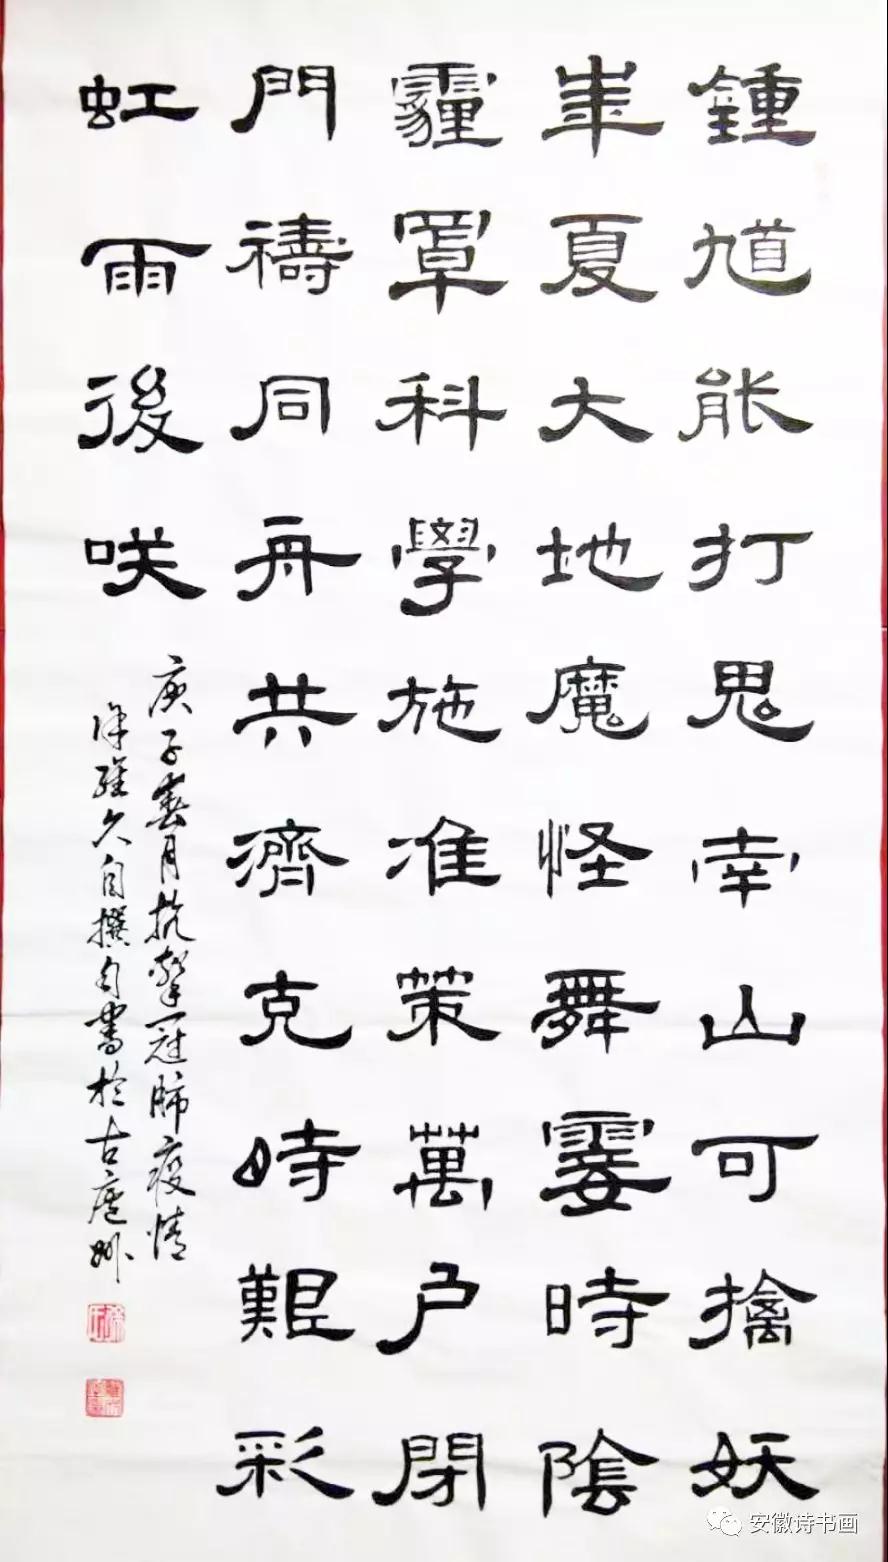 鍾馗能打鬼幸山可擒妖
華夏大地魔怪舞霎時陰
霾罩科學施准策萬户閉
門禱同舟共濟克時艱彩
虹雨後咲
庚子春月抗擊冠肺疫情
徐維久自撰自書於古廬州
安徽诗书画